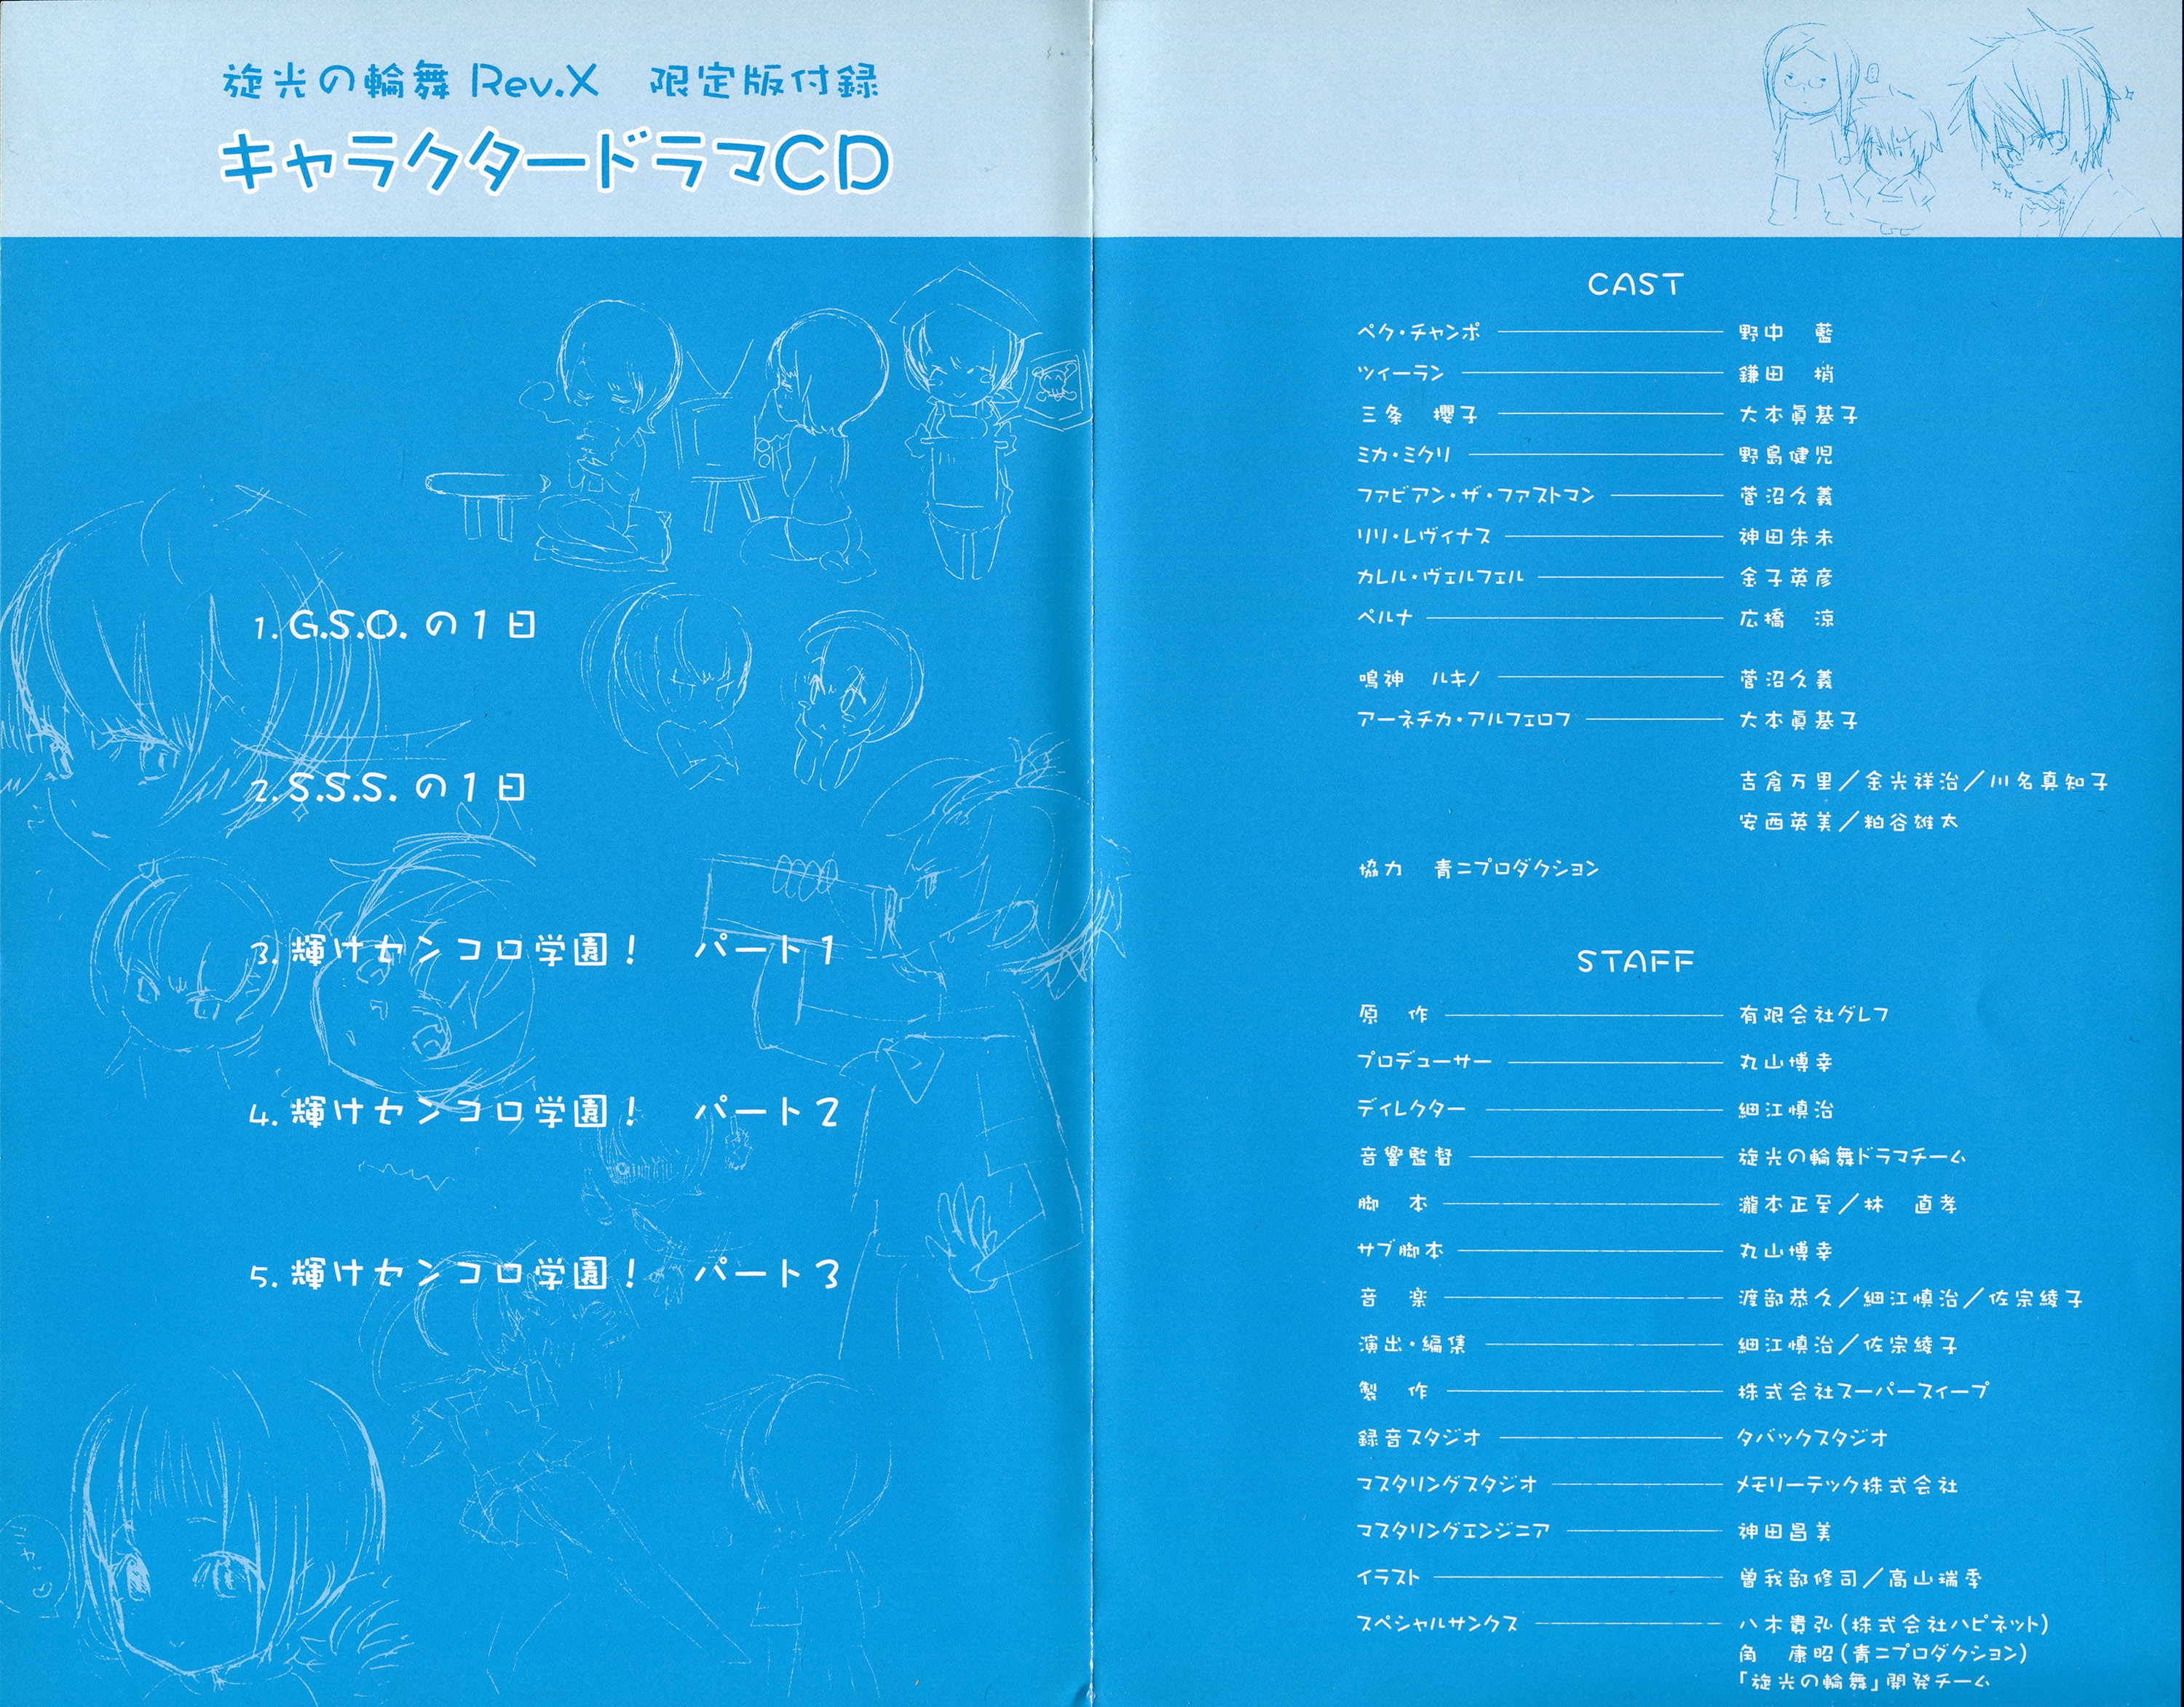 旋光の輪舞 Rev.X　限定版付録
キャラクタードラマCD
1. G.S.O. の1日
2. S.S.S. の1日
3. 輝けセンコロ学園！　パート1
4. 輝けセンコロ学園！　パート2
5. 輝けセンコロ学園！　パート3
CAST
ペク・チャンポ 野中　藍
ツィーラン 鎌田　梢
三条　櫻子 大本眞基子
ミカ・ミクリ 野島健児
ファビアン・ザ・ファストマン 菅沼久義
リリ・レヴィナス 神田朱未
カレル・ヴェルフェル 金子英彦
ペルナ 広橋　涼
鳴神　ルキノ 菅沼久義
アーネチカ・アルフェロフ 大本眞基子
吉倉万里／金光祥治／川名真知子
安西英美／粕谷雄太
協力　青ニプロダクション
STAFF
原　作 有限会社グレフ
プロデューサー 丸山博幸
ディレクター 細江慎治
音響監督 旋光の輪舞ドラマチーム
脚　本 瀧本正至／林　直孝
サブ脚本 丸山博幸
音　楽 渡部恭久／細江慎治／佐宗綾子
演出・編集 細江慎治／佐宗綾子
製　作 株式会社スーパースィープ
録音スタジオ タバックスタジオ
マスタリングスタジオ メモリーテック株式会社
マスタリングエンジニア 神田昌美
イラスト 曽我部修司／高山瑞季
スペシャルサンクス 八木貴弘（株式会社ハピネット）
角　康昭（青ニプロダクション）
「旋光の輪舞」開発チーム